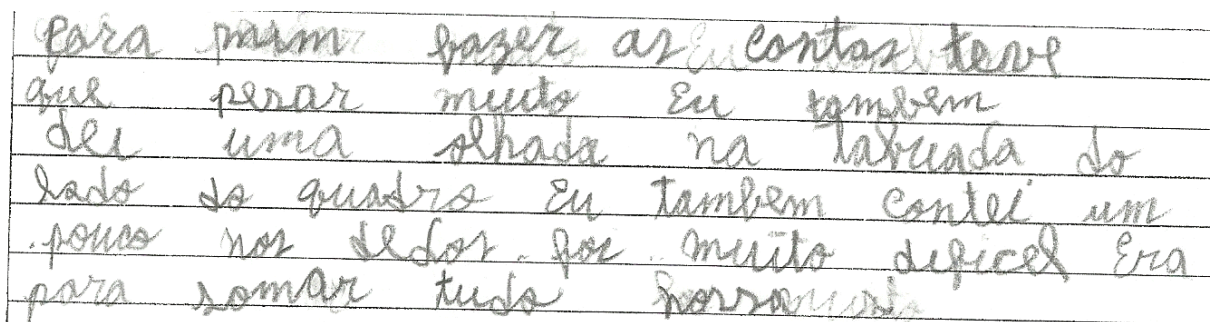 para mim fazer as contas teve
que pesar muito Eu tambem
dei uma olhada na tabuada do
lado do quadro Eu tambem contei um
pouco nos dedos. foi muito dificel Era
para somar tudo